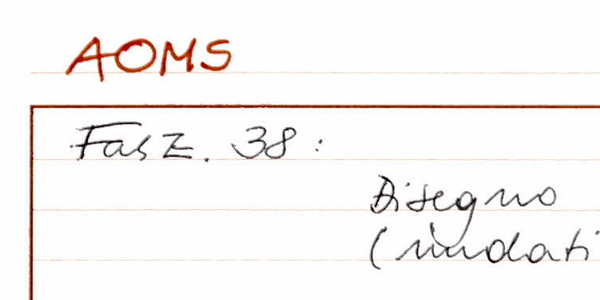 AOMS
Fasz. 38:
Disegno